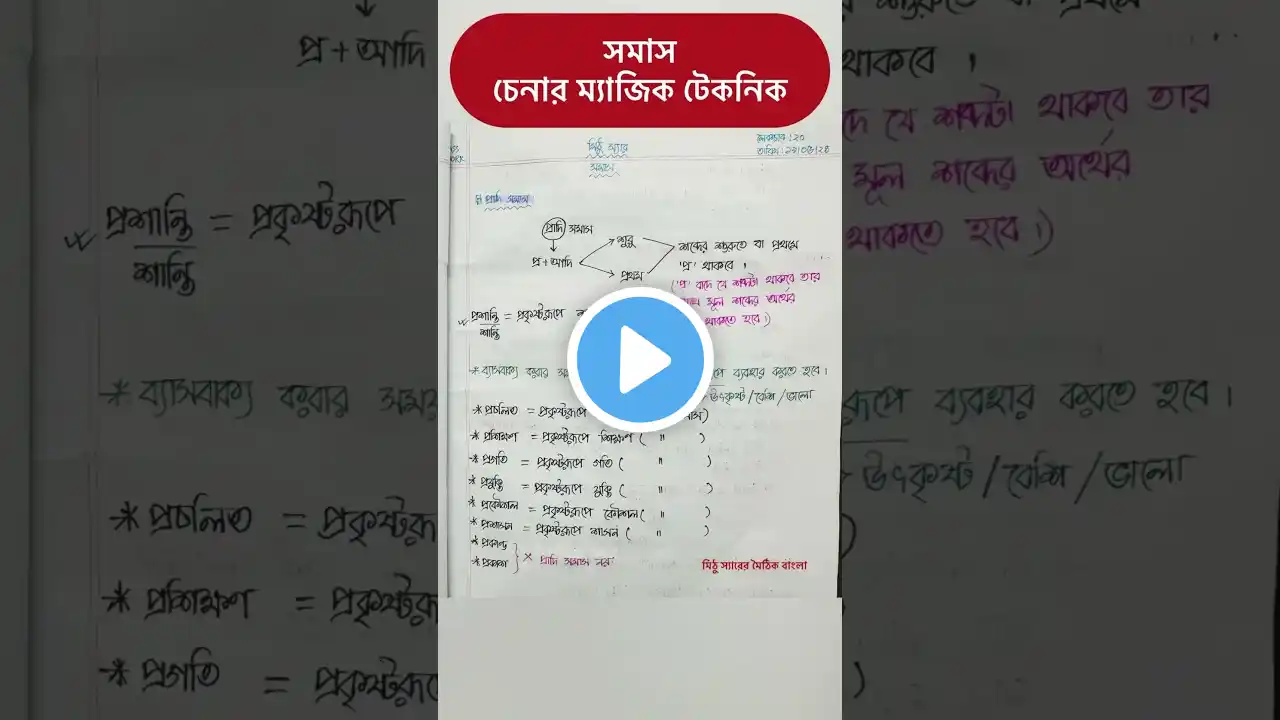 সমাস
চেনার ম্যাজিক টেকনিক
মিঠু স্যার
সমাস
লেকচার : ২০
তারিখ :
প্রাদি সমাস
প্রাদি সমাস
প্র + আদি
শুরু
প্রথম
শব্দের শুরুতে বা প্রথমে
'প্র' থাকবে ।
('প্র' বাদে যে শব্দটা থাকবে তার
মূল শব্দের অর্থের
থাকতে হবে।)
প্রশান্তি = প্রকৃষ্টরূপে
শান্তি
* ব্যাসবাক্য করবার সময় ব্যবহার করতে হবে ।
উৎকৃষ্ট / বেশি / ভালো
* প্রচলিত = প্রকৃষ্টরূপে
* প্রশিক্ষণ = প্রকৃষ্টরূপে শিক্ষণ ( " )
* প্রগতি = প্রকৃষ্টরূপে গতি ( " )
* প্রযুক্তি = প্রকৃষ্টরূপে যুক্তি ( " )
* প্রকৌশল = প্রকৃষ্টরূপে কৌশল ( " )
* প্রশাসন = প্রকৃষ্টরূপে শাসন ( " )
* প্রকাণ্ড
* প্রকাশ } × প্রাদি সমাস নয়
মিঠু স্যারের মৈঠিক বাংলা